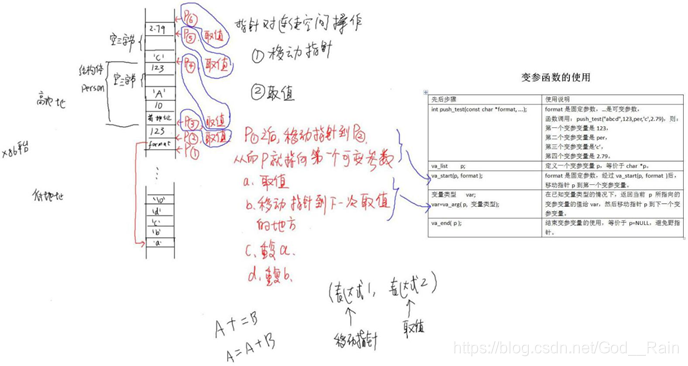 指针对连续空间操作
① 移动指针
② 取值
P⑥
2.79
P⑤ 取值
空三字节
'C'
P④ 取值
结构体
person
123
空三字节
'A'
高地址
10
P③ 取值
123
P② 取值
format
P①
x86平台
低地址
'\0'
'd'
'c'
'b'
'a'
P①之后,移动指针到P②
从而P就指向第一个可变参数
a. 取值
b. 移动指针到下一次取值
的地方
c. 重复a.
d. 重复b.
(表达式1, 表达式2)
移动指针
取值
A+=B
A=A+B
变参函数的使用
先后步骤
使用说明
int push_test(const char *format, ...);
format 是固定参数, ...是可变参数。
函数调用: push_test("abcd",123,per,'c',2.79); 则:
第一个变参变量是 123.
第二个变参变量是 per.
第三个变参变量是'c'.
第四个变参变量是 2.79.
va_list p;
定义一个变参变量 p, 等价于 char *p.
va_start(p, format );
format 是固定参数, 经过 va_start(p, format )后,
移动指针 p 到第一个变参变量。
变量类型 var;
var=va_arg( p, 变量类型);
在已知变参变量类型的情况下, 返回当前 p 所指向的
变参变量的值给 var, 然后移动指针 p 到下一个变
参变量。
va_end( p );
结束变参变量的使用, 等价于 p=NULL, 避免野指
针。
https://blog.csdn.net/God__Rain